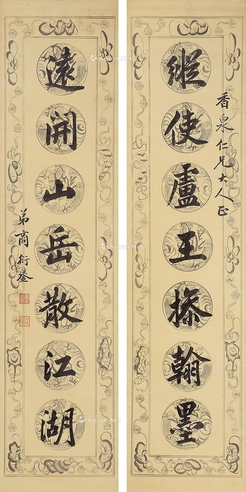 香泉仁兄大人正
縱使盧王操翰墨
遠開山岳散江湖
弟商衍鎏